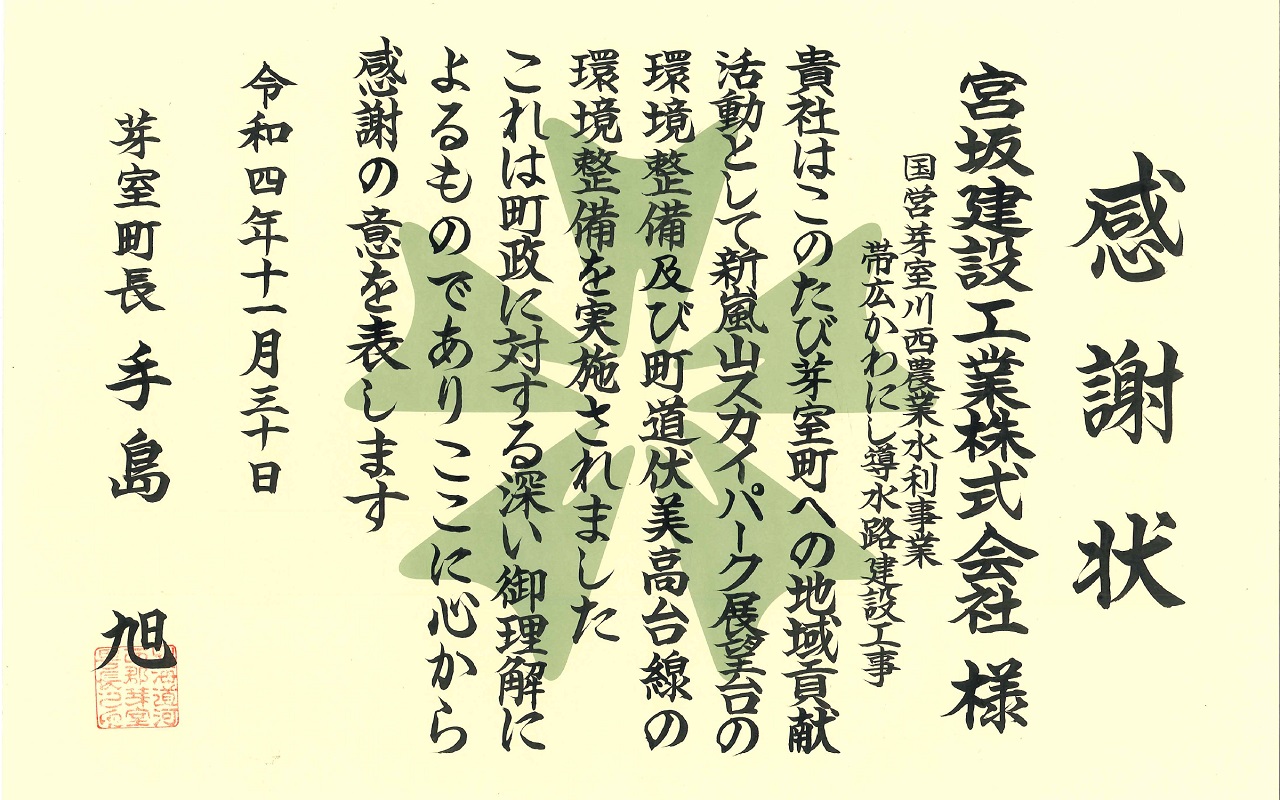 感謝状
宮坂建設工業株式会社 様
国営芽室川西農業水利事業
帯広かわにし導水路建設工事
貴社はこのたび芽室町への地域貢献
活動として新嵐山スカイパーク展望台の
環境整備及び町道伏美高台線の
環境整備を実施されました
これは町政に対する深い御理解に
よるものでありここに心から
感謝の意を表します
令和四年十一月三十日
芽室町長 手島 旭